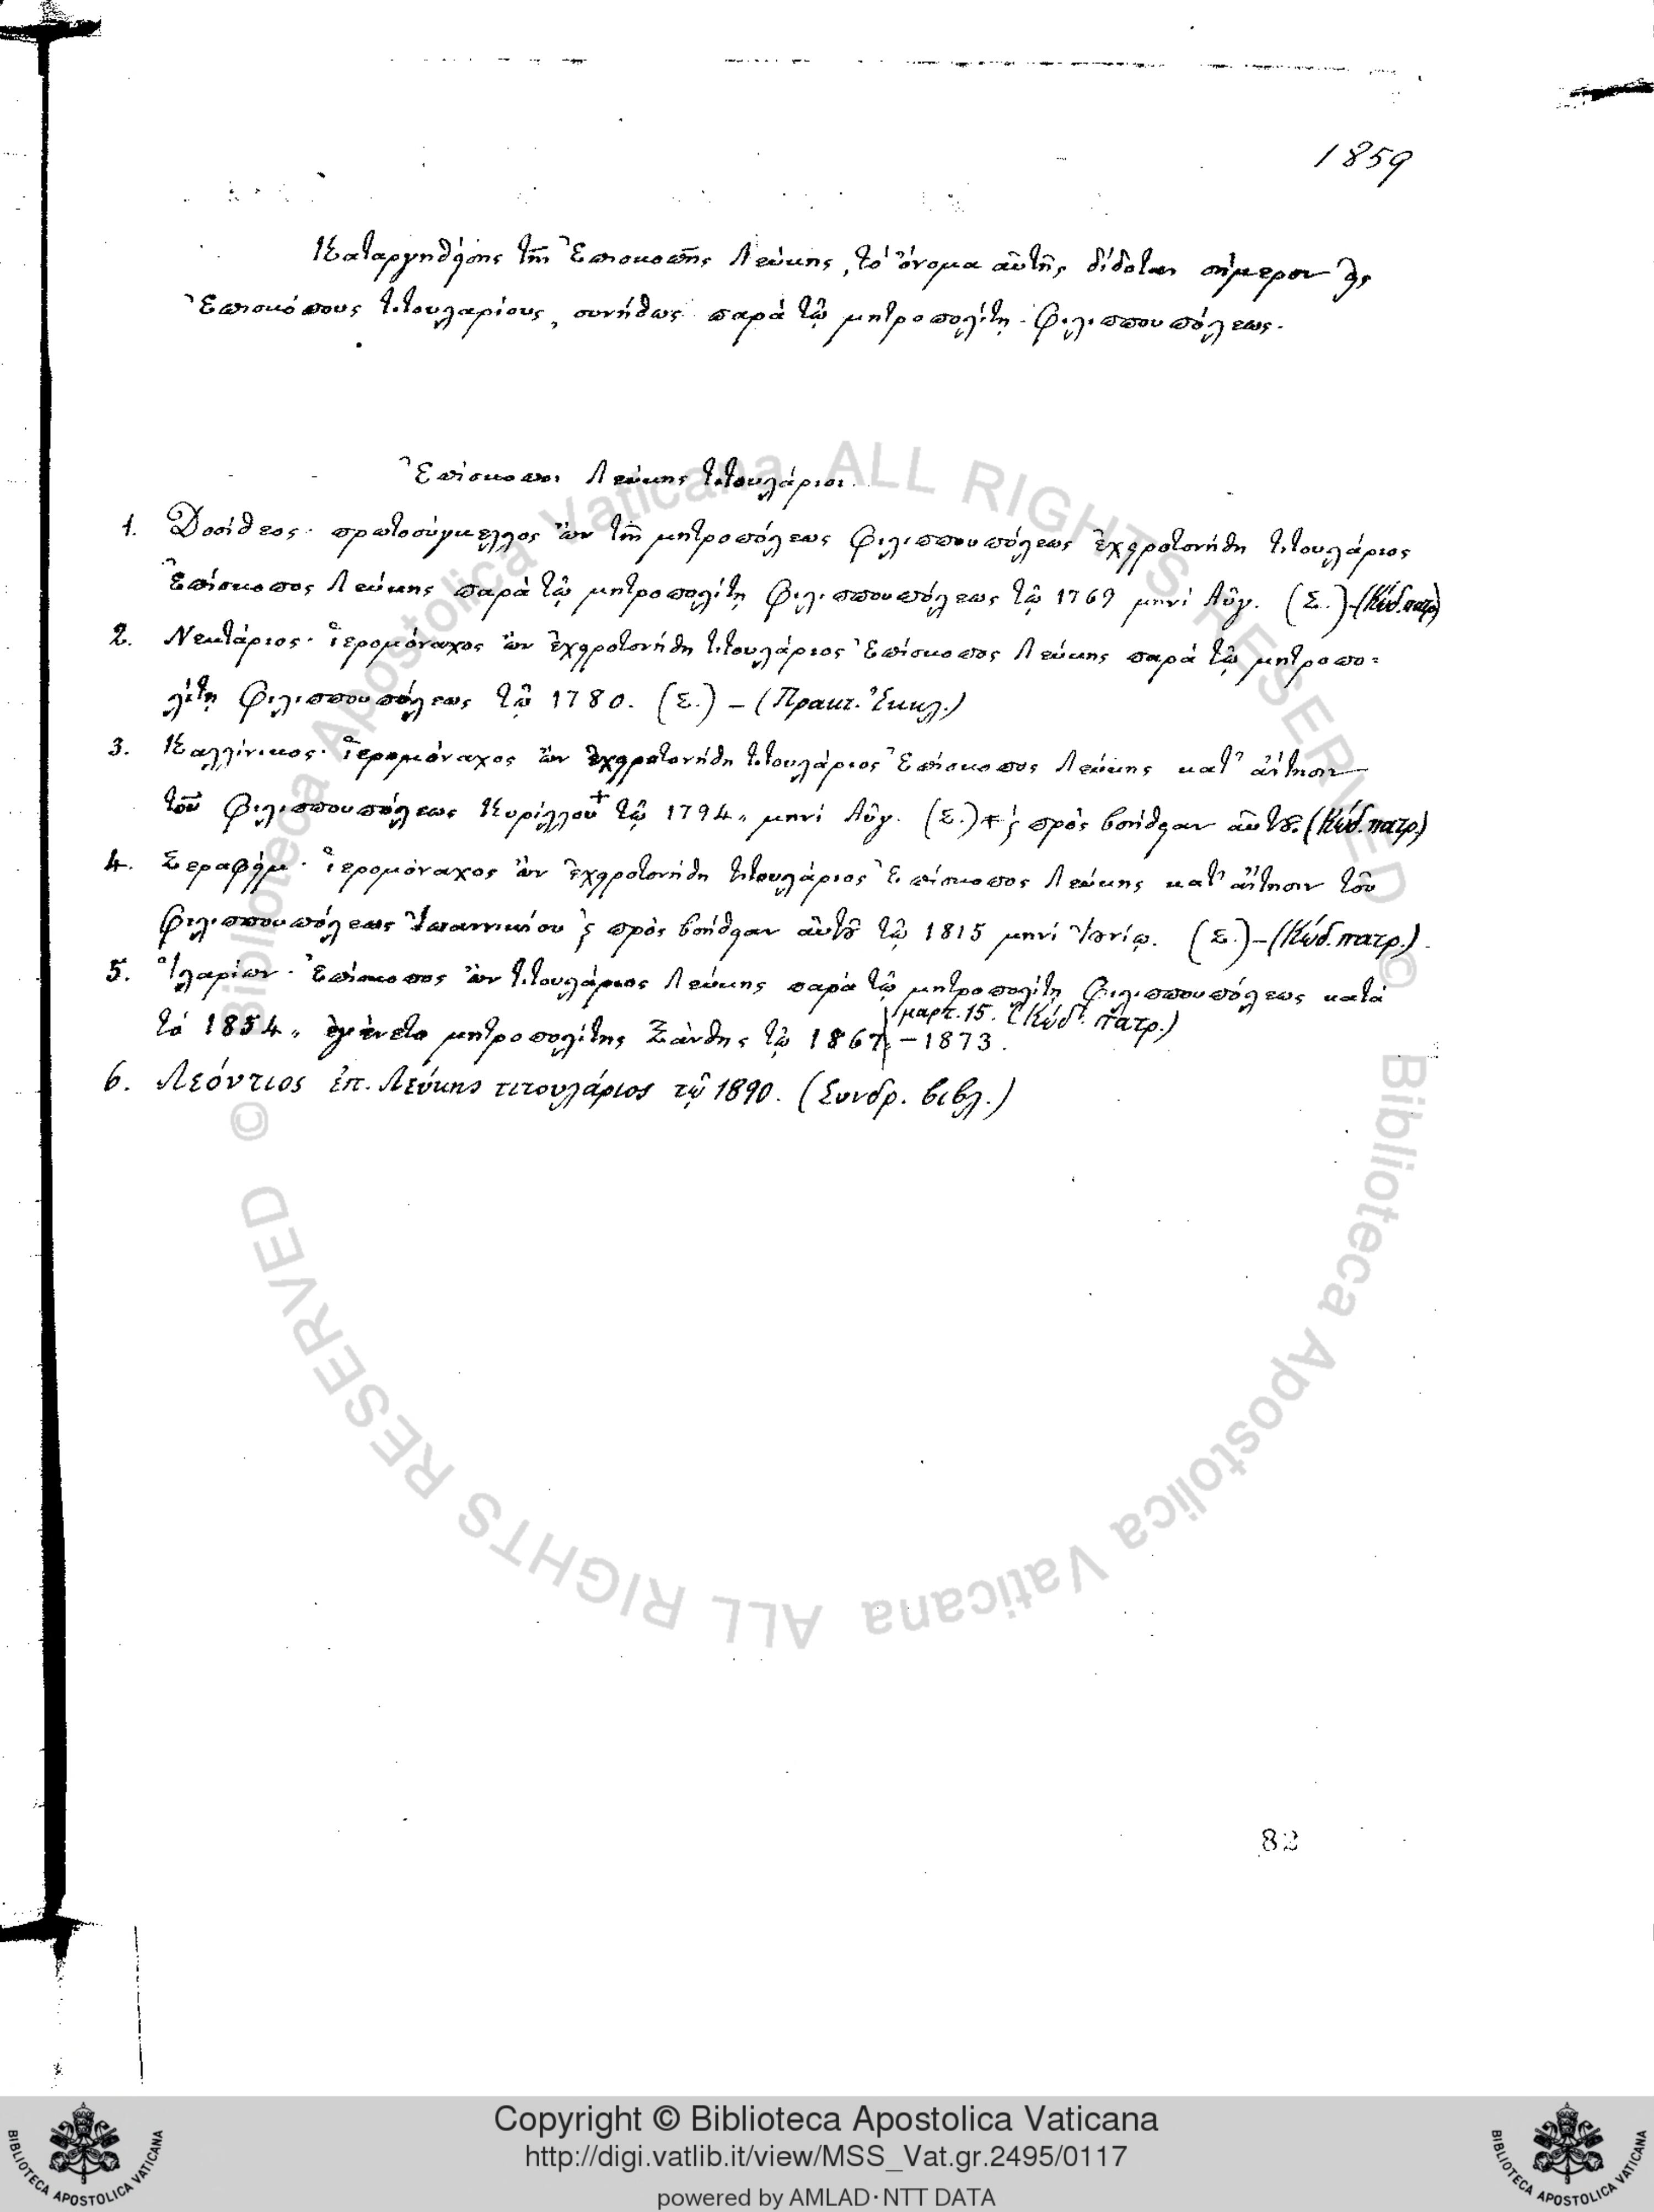 1859
Καταργηθείσης τῆς Ἐπισκοπῆς Λεύκης, τὸ ὄνομα αὐτῆς δίδοται σήμερον εἰς
Ἐπισκόπους τιτουλαρίους, συνήθως παρὰ τῷ μητροπολίτῃ Φιλιππουπόλεως.
Ἐπίσκοποι Λεύκης τιτουλάριοι.
1. Δοσίθεος· πρωτοσύγκελλος ὢν τῆς μητροπόλεως Φιλιππουπόλεως ἐχειροτονήθη τιτουλάριος
Ἐπίσκοπος Λεύκης παρὰ τῷ μητροπολίτῃ Φιλιππουπόλεως τῷ 1769 μηνὶ Αὐγ. (Σ.)-(Κώδ. πατρ)
2. Νεκτάριος· ἱερομόναχος ὢν ἐχειροτονήθη τιτουλάριος Ἐπίσκοπος Λεύκης παρὰ τῷ μητροπο=
λίτῃ Φιλιππουπόλεως τῷ 1780. (Σ.) – (Πρακτ. Ἐκκλ.)
3. Καλλίνικος· ἱερομόναχος ὢν ἐχειροτονήθη τιτουλάριος Ἐπίσκοπος Λεύκης κατ' αἴτησιν
τοῦ Φιλιππουπόλεως Κυρίλλου + τῷ 1794, μηνὶ Αὐγ. (Σ.) + ϗ πρὸς βοήθειαν αὐτοῦ. (Κώδ. πατρ.)
4. Σεραφείμ· ἱερομόναχος ὢν ἐχειροτονήθη τιτουλάριος Ἐπίσκοπος Λεύκης κατ' αἴτησιν τοῦ
Φιλιππουπόλεως Ἰωαννικίου ϗ πρὸς βοήθειαν αὐτοῦ τῷ 1815 μηνὶ Ἰουνίῳ. (Σ.)–(Κώδ. πατρ.).
5. Ἱλαρίων· Ἐπίσκοπος ὢν τιτουλάριος Λεύκης παρὰ τῷ μητροπολίτῃ Φιλιππουπόλεως κατὰ
μαρτ. 15. (Κώδ. πατρ.)
τὸ 1854, ἐγένετο μητροπολίτης Ξάνθης τῷ 1867 – 1873.
6. Λεόντιος ἐπ. Λεύκης τιτουλάριος τῷ 1890. (Συνδρ. βιβλ.)
82
© Biblioteca Apostolica Vaticana ALL RIGHTS RESERVED
© Biblioteca Apostolica Vaticana ALL RIGHTS RESERVED
BIBLIOTECA APOSTOLICA VATICANA
Copyright © Biblioteca Apostolica Vaticana
http://digi.vatlib.it/view/MSS_Vat.gr.2495/0117
powered by AMLAD·NTT DATA
BIBLIOTECA APOSTOLICA VATICANA